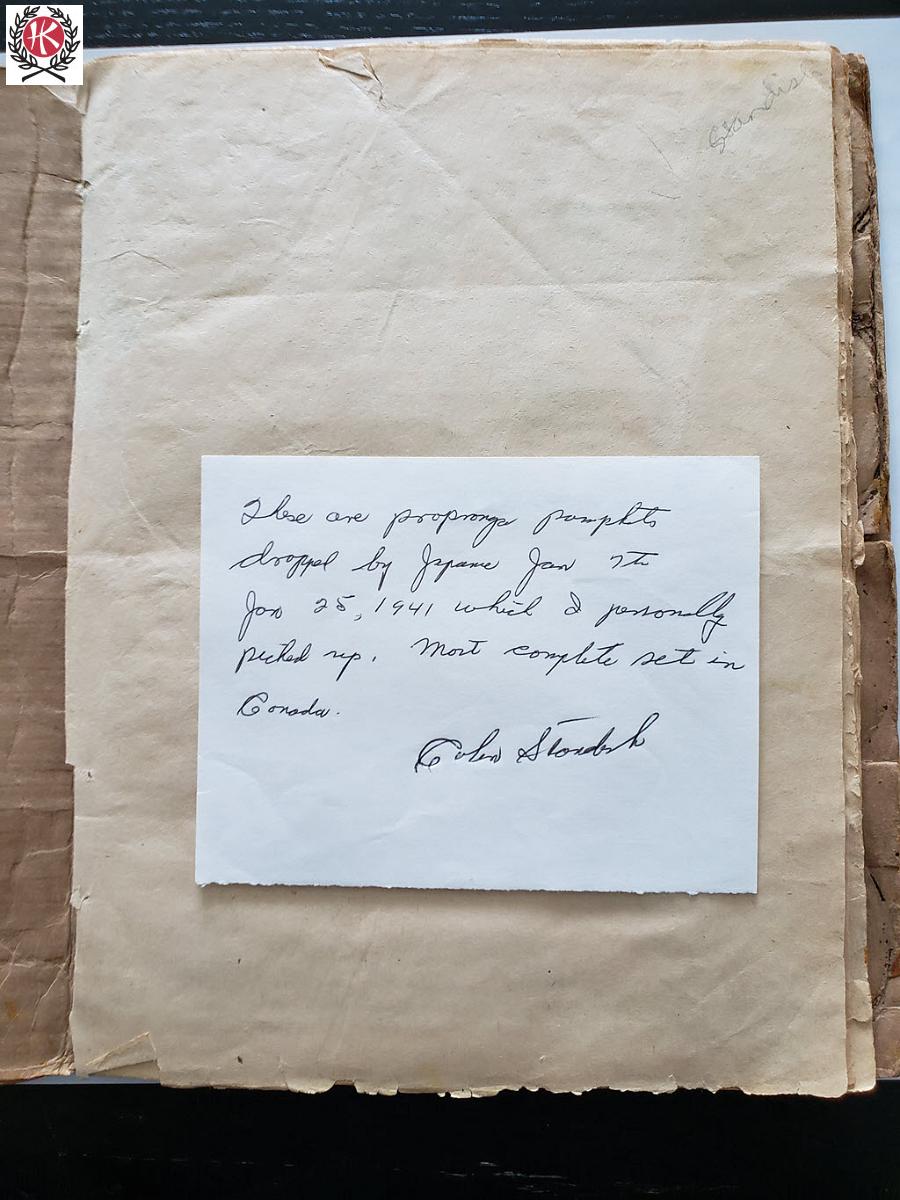 HK
Standish
These are propronga pamphts
dropped by Japanese Jan 7th
Jan 25, 1941 which I personally
picked up. Most complete set in
Canada.
Colin Standish